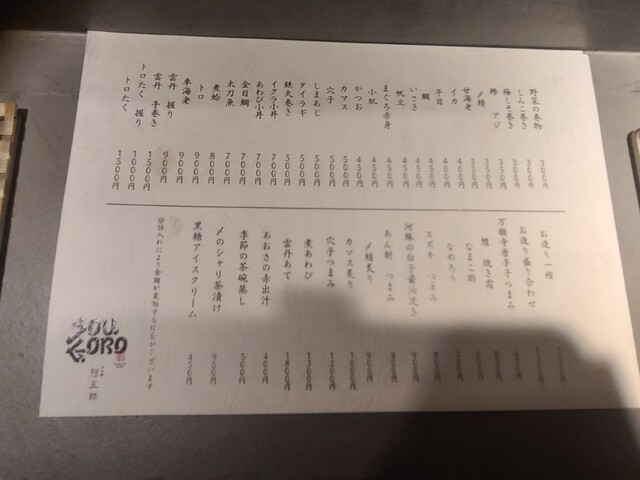 野菜の巻物 300円
しんこ巻き 300円
梅しそ巻き 300円
アジ 350円
〆鯖 350円
甘海老 400円
イカ 400円
平目 450円
鯛 450円
いさき 450円
帆立 450円
まぐろ赤身 450円
小肌 450円
かつお 450円
カマス 500円
穴子 500円
しまあじ 500円
タイラギ 500円
鉄火巻き 500円
イクラ小丼 700円
あわび小丼 700円
金目鯛 700円
太刀魚 700円
煮蛤 800円
トロ 900円
車海老 900円
雲丹 握り 900円
雲丹 手巻き 1500円
トロたく 握り 1000円
トロたく 1500円
お造り一種
お造り盛り合わせ
万願寺唐辛子つまみ
鰹 焼き霜
なまこ酢
なめろう
スズキ つまみ
河豚の白子醤油焼き
あん肝 つまみ
〆鯖炙り
カマス炙り
穴子つまみ
煮あわび
雲丹あて
あおさの赤出汁 400円
季節の茶碗蒸し 500円
〆のシャリ茶漬け 900円
黒糖アイスクリーム 450円
※仕入れにより金額が変動する場合がございます
SOU
GORO
想五郎